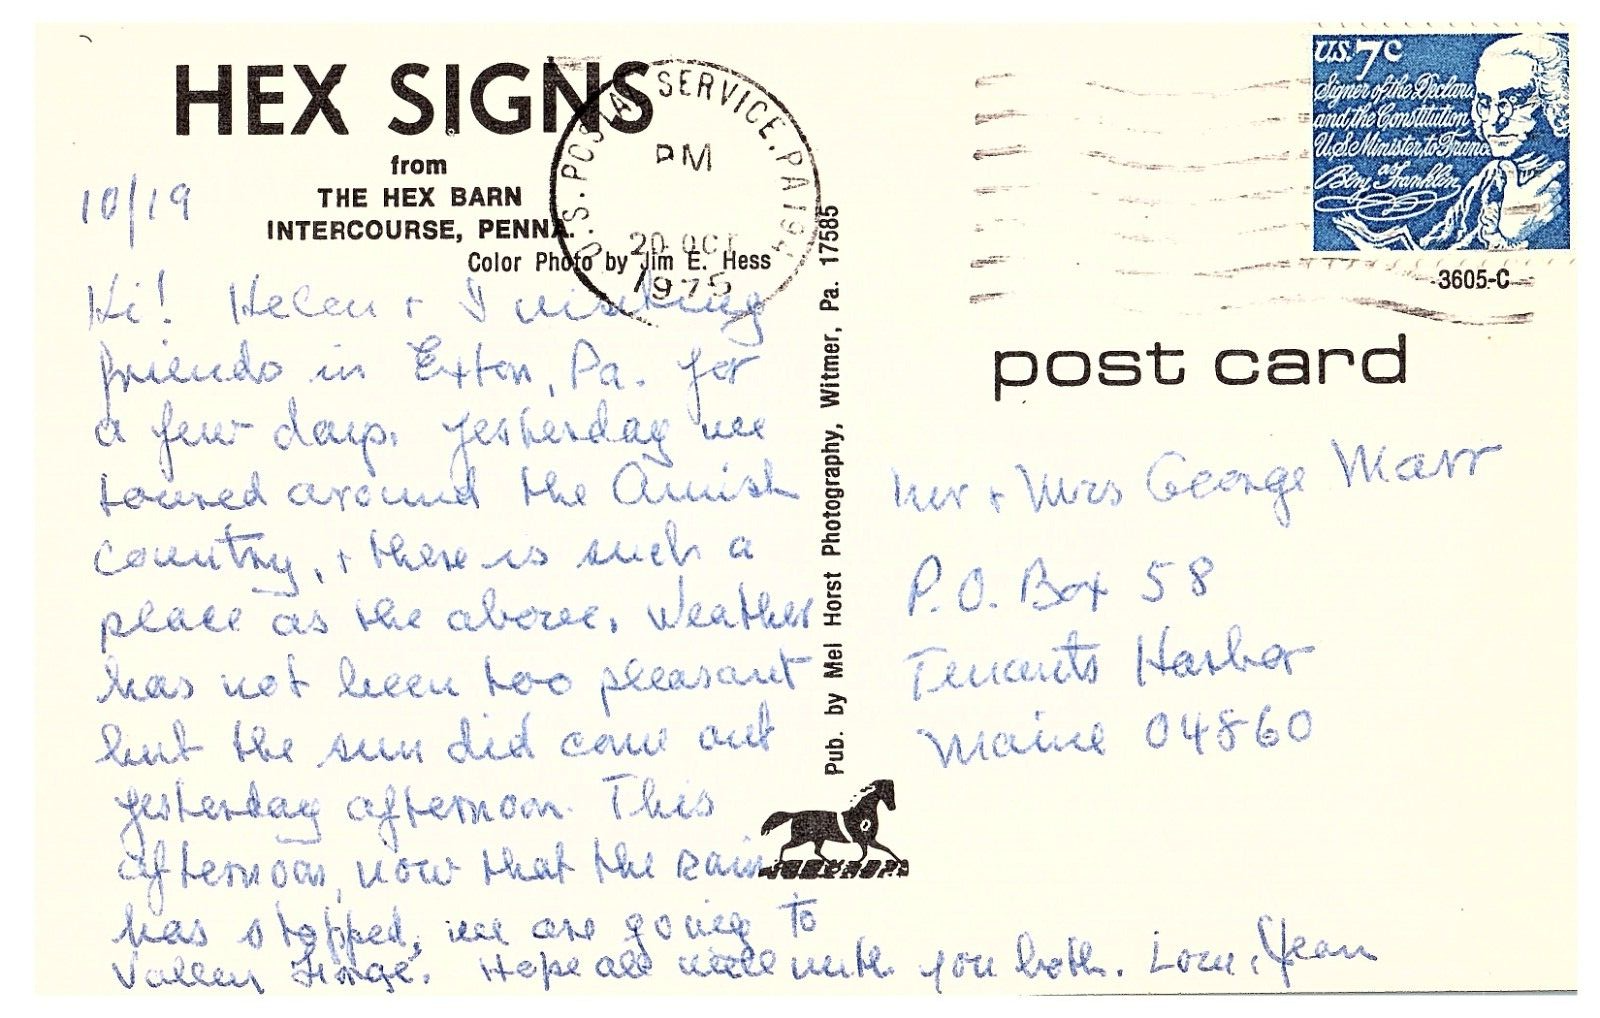 HEX SIGNS
from
THE HEX BARN
INTERCOURSE, PENNA.
Color Photo by Jim E. Hess
10/19
Hi! Helen + I visiting
friends in Exton, Pa. for
a few days. Yesterday we
toured around the Amish
country, + there is such a
place as the above. Weather
has not been too pleasant
but the sun did come out
yesterday afternoon. This
afternoon, now that the rain
has stopped, we are going to
Valley Forge. Hope all well with you both. Love, Jean
U.S. POSTAL SERVICE, PA 194
PM
20 OCT
1975
Pub. by Mel Horst Photography, Witmer, Pa. 17585
U.S. 7c
Signer of the Declara
and the Constitution
U.S Minister to France
Benj Franklin
3605-C
post card
Mr + Mrs George Marr
P.O. Box 58
Tenants Harbor
Maine 04860